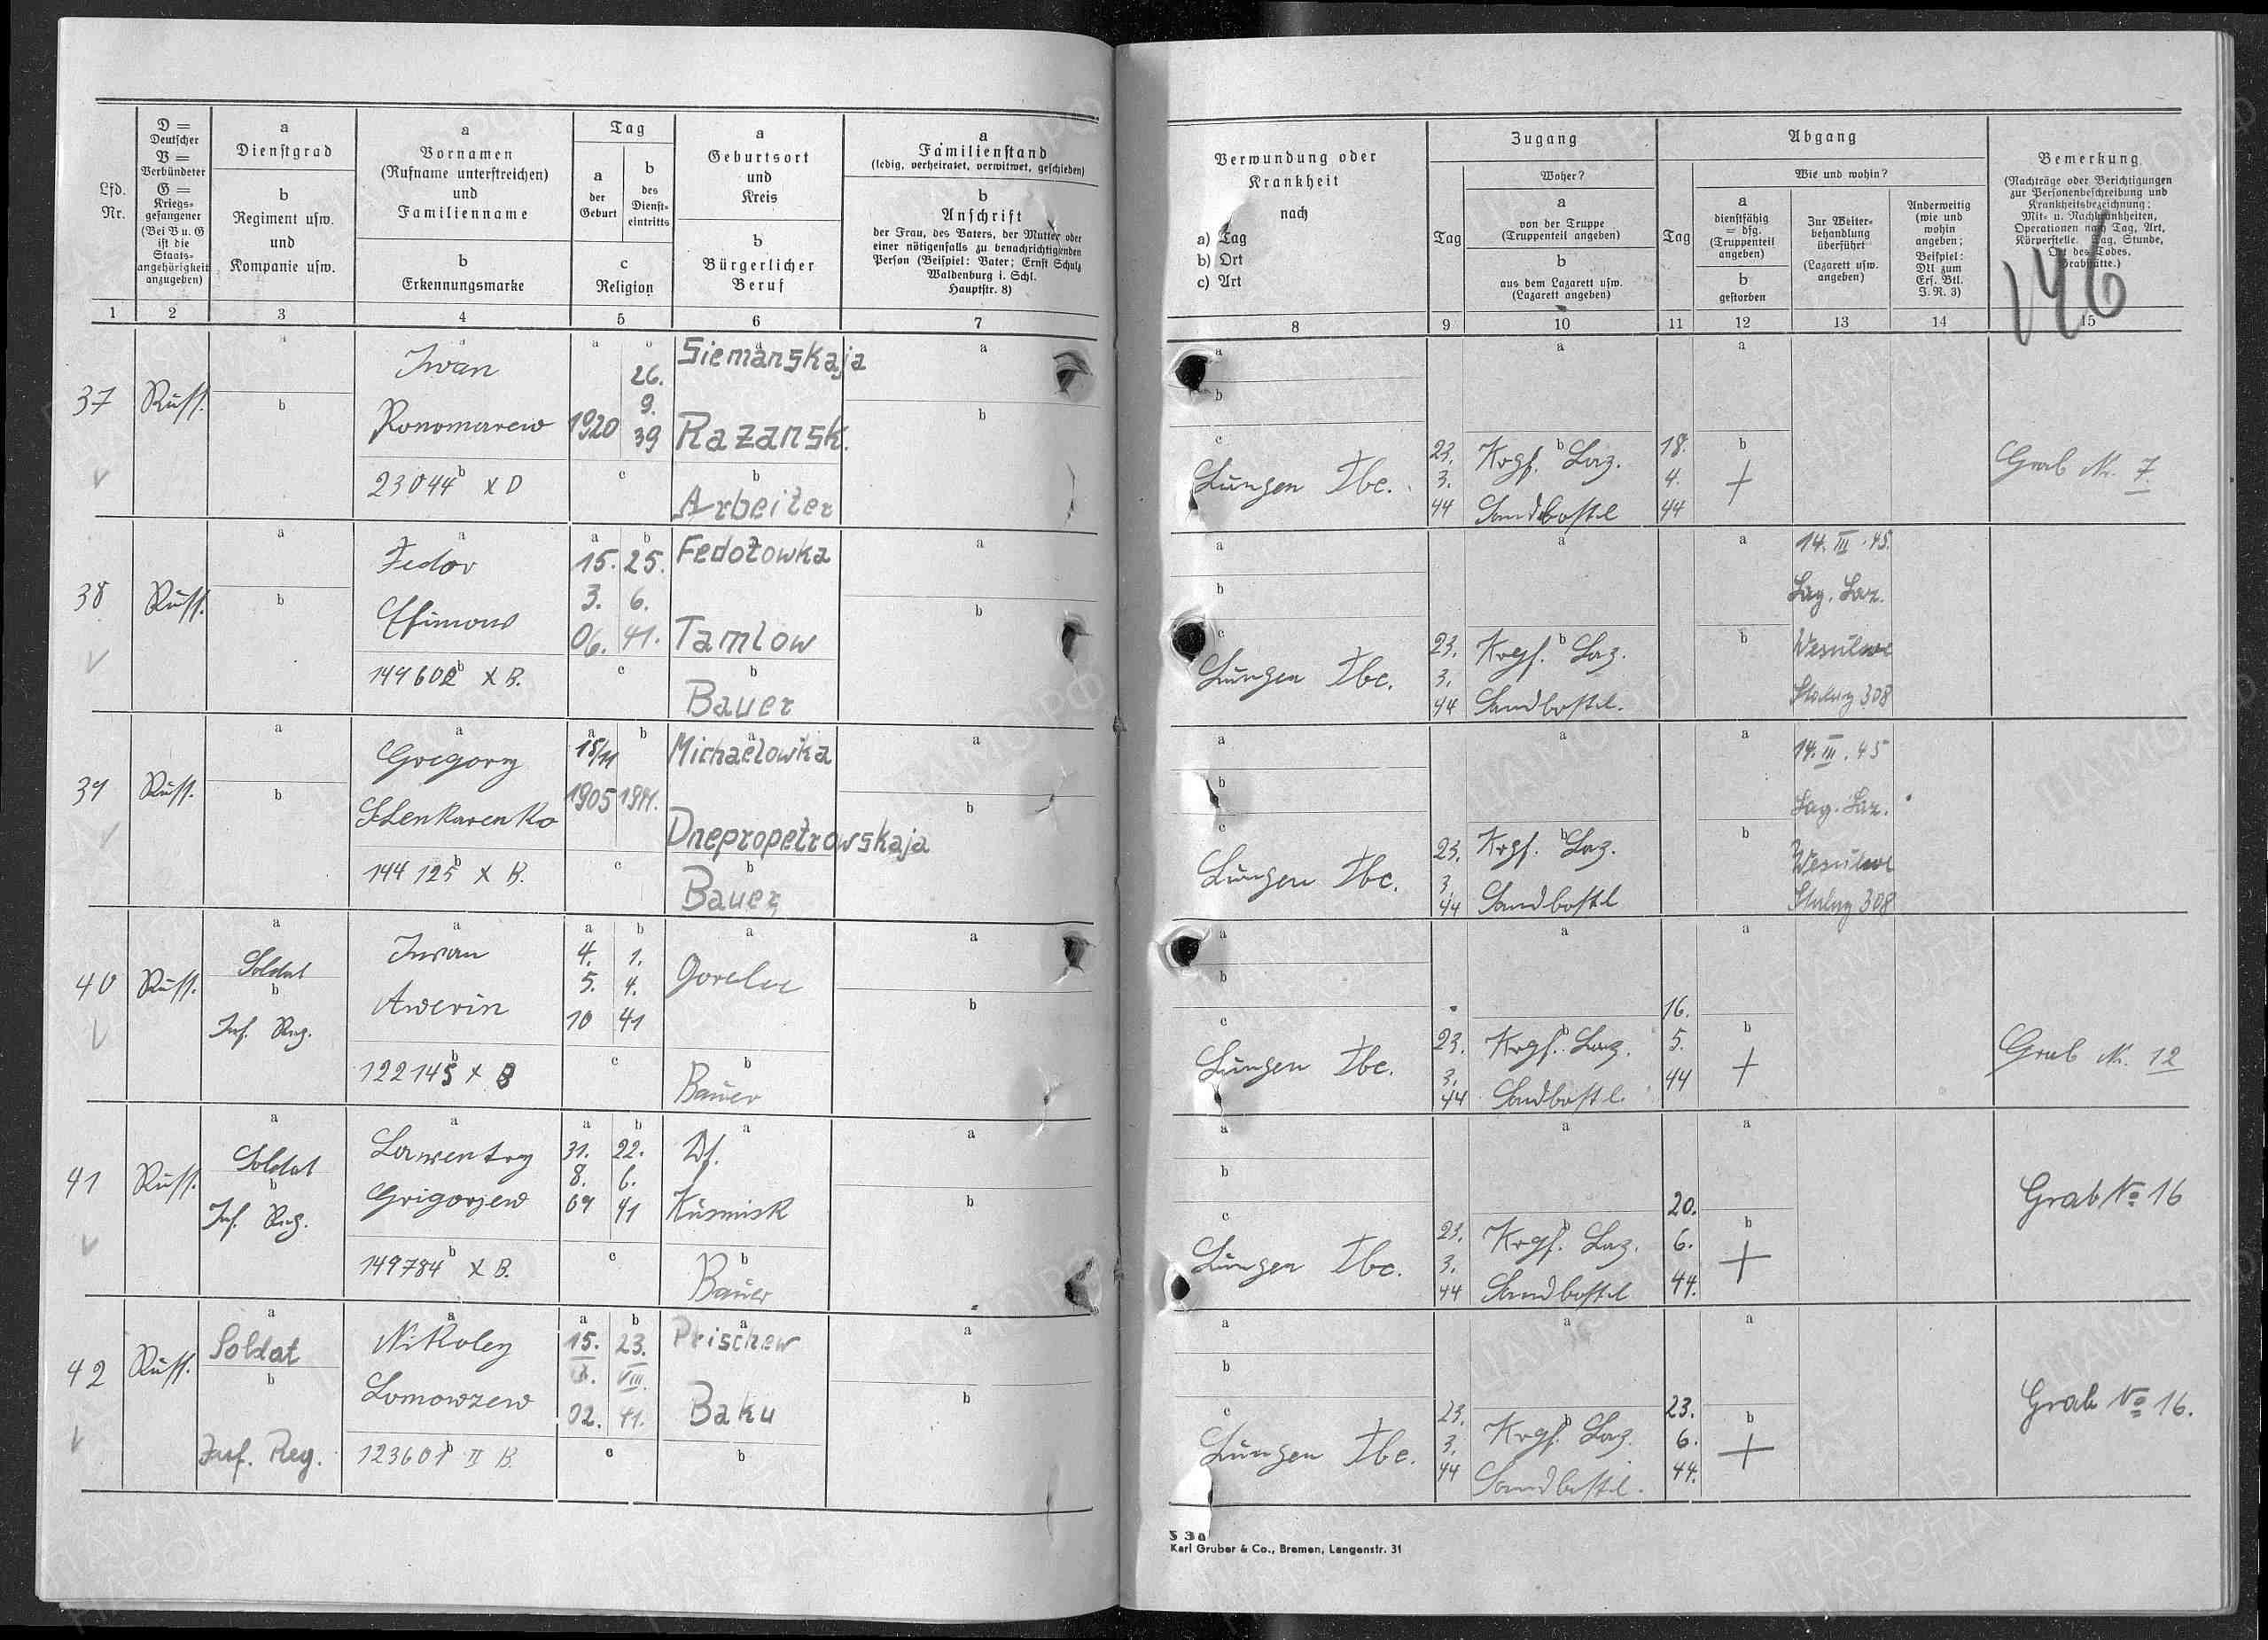 Lfd. Nr.
D = Deutscher
V = Verbündeter
G = Kriegs-
gefangener
(Bei V u. G
ist die
Staats-
angehörigkeit
anzugeben)
a
Dienstgrad
b
Regiment usw.
und
Kompanie usw.
a
Vornamen
(Rufname unterstreichen)
und
Familienname
b
Erkennungsmarke
Tag
a
der
Geburt
b
des
Dienst-
eintritts
c
Religion
a
Geburtsort
und
Kreis
b
Bürgerlicher
Beruf
a
Familienstand
(ledig, verheiratet, verwitwet, geschieden)
b
Anschrift
der Frau, des Vaters, der Mutter oder
einer nötigenfalls zu benachrichtigenden
Person (Beispiel: Vater: Ernst Schulz
Waldenburg i. Schl.
Hauptstr. 8)
1 2 3 4 5 6 7
37 Russ.
Iwan
Ponomarew
23044 X D
1920
26.
9.
39
Siemanskaja
Razansk.
Arbeiter
38 Russ.
Fedor
Efimow
149602 X B.
15.
3.
06.
25.
6.
41.
Fedotowka
Tamlow
Bauer
39 Russ.
Gregory
144125 X B.
18/11
1905
1941.
Michaelowka
Dnepropetrowskaja
Bauer
40 Russ.
Soldat
Inf. Reg.
Iwan
Awerin
122145 X B
4.
5.
10
1.
4.
41
Bauer
41 Russ.
Soldat
Inf. Reg.
Lawrentry
Grigorjew
149784 X B.
31.
8.
09
22.
6.
41
Df.
Kusmisk
Bauer
42 Russ.
Soldat
Inf. Reg.
Nikoley
Lomowzew
123601 II B.
15.
IX.
02.
23.
VIII.
41.
Prischew
Baku
Verwundung oder
Krankheit
nach
a) Tag
b) Ort
c) Art
Zugang
Tag
Woher?
a
von der Truppe
(Truppenteil angeben)
b
aus dem Lazarett usw.
(Lazarett angeben)
Abgang
Tag
Wie und wohin?
a
dienstfähig
= dfg.
(Truppenteil
angeben)
b
gestorben
Zur Weiter-
behandlung
überführt
(Lazarett usw.
angeben)
Anderweitig
(wie und
wohin
angeben;
Beispiel:
Du zum
Ers. Btl.
J. R. 3)
Bemerkung
(Nachträge oder Berichtigungen
zur Personenbeschreibung und
Krankheitsbezeichnung;
Mit- u. Nachkrankheiten,
Operationen nach Tag, Art,
Körperstelle. Tag, Stunde,
Ort des Todes.
Grabstätte.)
146
8 9 10 11 12 13 14 15
Lungen Tbc.
23.
3.
44
Krgf. Laz.
Sandbostel
18.
4.
44
+
Grab Nr. 7.
Lungen Tbc.
23.
3.
44
Krgf. Laz.
Sandbostel.
14. III. 45.
Lag. Laz.
Wesuwe
Stalag 308
Lungen Tbc.
23.
3.
44
Krgf. Laz.
Sandbostel
14. III. 45
Lag. Laz.
Wesuwe
Stalag 308
Lungen Tbc.
23.
3.
44
Krgf. Laz.
Sandbostel.
16.
5.
44
+
Grab Nr. 12
Lungen Tbc.
23.
3.
44
Krgf. Laz.
Sandbostel
20.
6.
44.
+
Grab No 16
Lungen Tbc.
23.
3.
44
Krgf. Laz.
Sandbostel.
23.
6.
44.
+
Grab No 16.
S 3a
Karl Gruber & Co., Bremen, Langenstr. 31